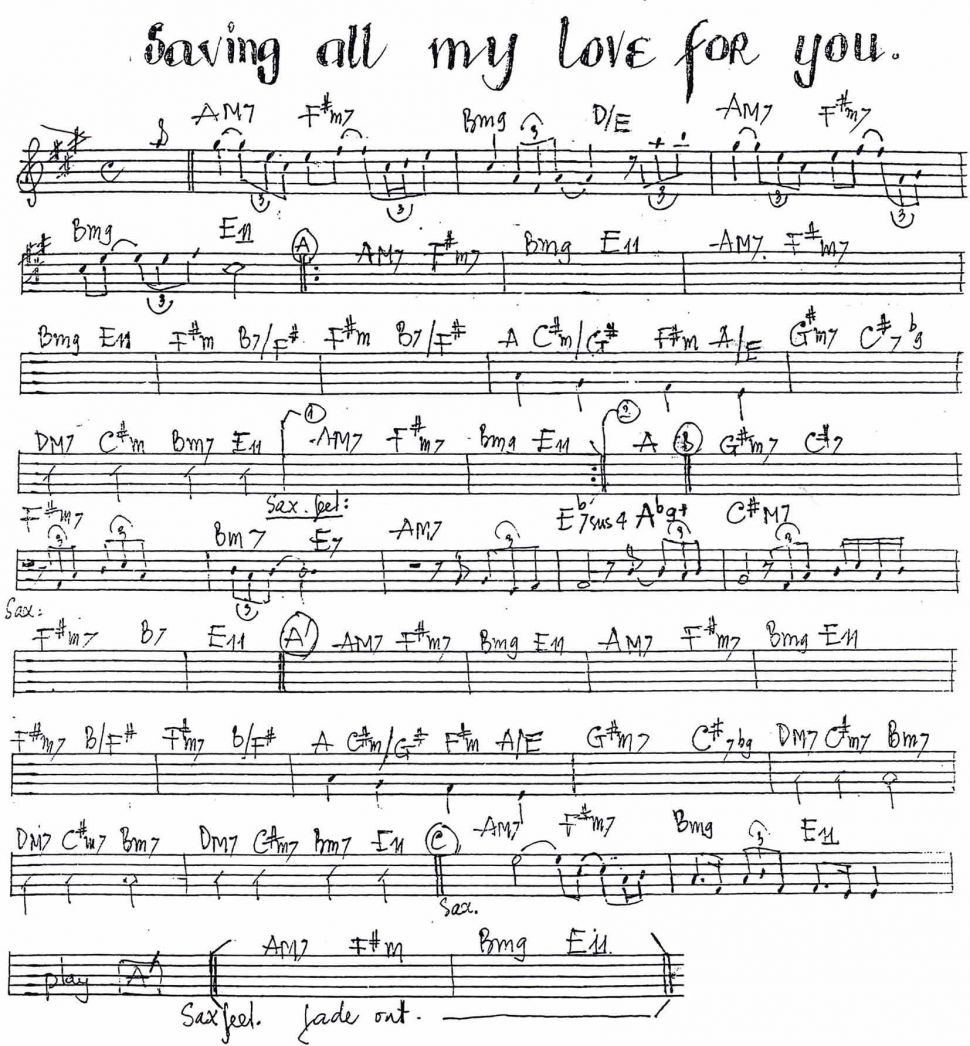 Saving all my LOVE FOR you.
AM7 F#m7 Bm9 D/E AM7 F#m7
3 3 3 3 3 3
Bm9 E11 A AM7 F#m7 Bm9 E11 AM7. F#m7
3
Bm9 E11 F#m B7/F# F#m B7/F# A C#m/G# F#m A/E G#m7 C#7b9
1 2
DM7 C#m Bm7 E11 AM7 F#m7 Bm9 E11 A B G#m7 C#7
Sax. feel:
F#m7 Bm7 E7 AM7 Eb7sus4 Ab9+ C#M7
3 3 3 3 3 3
Sax:
F#m7 B7 E11 A' AM7 F#m7 Bm9 E11 AM7 F#m7 Bm9 E11
F#m7 B/F# F#m7 B/F# A C#m/G# F#m A/E G#m7 C#7b9 DM7 C#m7 Bm7
DM7 C#m7 Bm7 DM7 C#m7 Bm7 E11 C AM7 F#m7 Bm9 E11
3
Sax.
AM7 F#m Bm9 E11.
play A'
Sax feel. fade out.